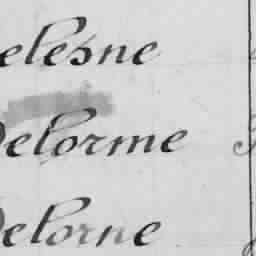 elesne
Delorme
Delorne